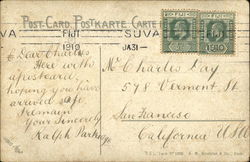 POST-CARD. POSTKARTE. CARTE
SUVA
FIJI
1910
JA31
Dear Charles
Here with
a postcard,
hoping you have
arrived safe
I remain
Your Sincerely
Ralph
Mr Charles Day
578 Vermont St.
San Francisco
California